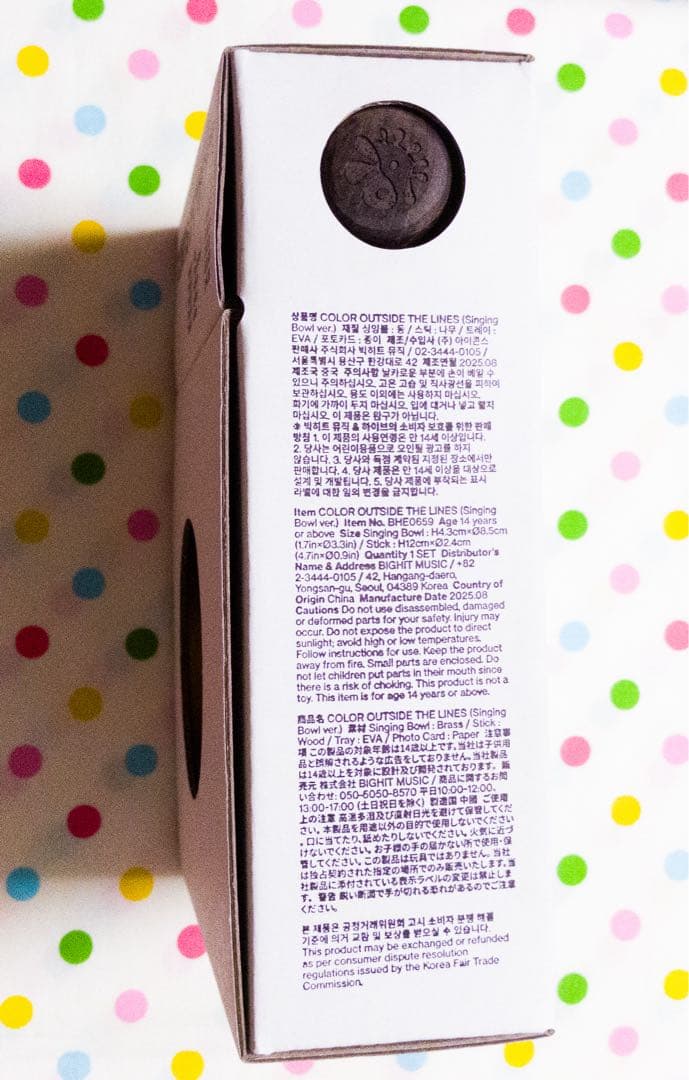 상품명 COLOR OUTSIDE THE LINES (Singing
Bowl ver.) 재질 싱잉볼 : 동 / 스틱 : 나무 / 트레이 :
EVA / 포토카드 : 종이 제조/수입사 (주) 아이콘스
판매사 주식회사 빅히트 뮤직 / 02-3444-0105 /
서울특별시 용산구 한강대로 42 제조연월 2025.08
제조국 중국 주의사항 날카로운 부분에 손이 베일 수
있으니 주의하십시오. 고온 고습 및 직사광선을 피하여
보관하십시오. 용도 이외에는 사용하지 마십시오.
화기에 가까이 두지 마십시오. 입에 대거나 넣고 핥지
마십시오. 이 제품은 완구가 아닙니다.
※ 빅히트 뮤직 & 하이브의 소비자 보호를 위한 판매
방침 1. 이 제품의 사용연령은 만 14세 이상입니다.
2. 당사는 어린이용품으로 오인될 광고를 하지
않습니다. 3. 당사와 독점 계약된 지정된 장소에서만
판매합니다. 4. 당사 제품은 만 14세 이상을 대상으로
설계 및 개발됩니다. 5. 당사 제품에 부착되는 표시
라벨에 대한 임의 변경을 금지합니다.
Item COLOR OUTSIDE THE LINES (Singing
Bowl ver.) Item No. BHE0659 Age 14 years
or above Size Singing Bowl : H4.3cm×Ø8.5cm
(1.7in×Ø3.3in) / Stick : H12cm×Ø2.4cm
(4.7in×Ø0.9in) Quantity 1 SET Distributor's
Name & Address BIGHIT MUSIC / +82
2-3444-0105 / 42, Hangang-daero,
Yongsan-gu, Seoul, 04389 Korea Country of
Origin China Manufacture Date 2025.08
Cautions Do not use disassembled, damaged
or deformed parts for your safety. Injury may
occur. Do not expose the product to direct
sunlight; avoid high or low temperatures.
Follow instructions for use. Keep the product
away from fire. Small parts are enclosed. Do
not let children put parts in their mouth since
there is a risk of choking. This product is not a
toy. This item is for age 14 years or above.
商品名 COLOR OUTSIDE THE LINES (Singing
Bowl ver.) 素材 Singing Bowl : Brass / Stick :
Wood / Tray : EVA / Photo Card : Paper 注意事
項 この製品の対象年齢は14歳以上です。当社は子供用
品と誤解されるような広告をしておりません。当社製品
は14歳以上を対象に設計及び開発されております。 販
売元 株式会社 BIGHIT MUSIC / 商品に関するお問
い合わせ: 050-5050-8570 平日10:00-12:00、
13:00-17:00 (土日祝日を除く) 製造国 中國 ご使用
上の注意 高温多湿及び直射日光を避けて保管してくだ
さい。本製品を用途以外の目的で使用しないでください
。口に当てたり、舐めたりしないでください。火気に近づ
けないでください。お子様の手の届かない所で使用・保
管してください。この製品は玩具ではありません。当社
は独占契約された指定の場所でのみ販売いたします。当
社製品に添付されている表示ラベルの変更は禁止しま
す。 警告 鋭い断面で手が切れる恐れがあるのでご注意
ください。
본 제품은 공정거래위원회 고시 소비자 분쟁 해결
기준에 의거 교환 및 보상을 받으실 수 있습니다.
This product may be exchanged or refunded
as per consumer dispute resolution
regulations issued by the Korea Fair Trade
Commission.